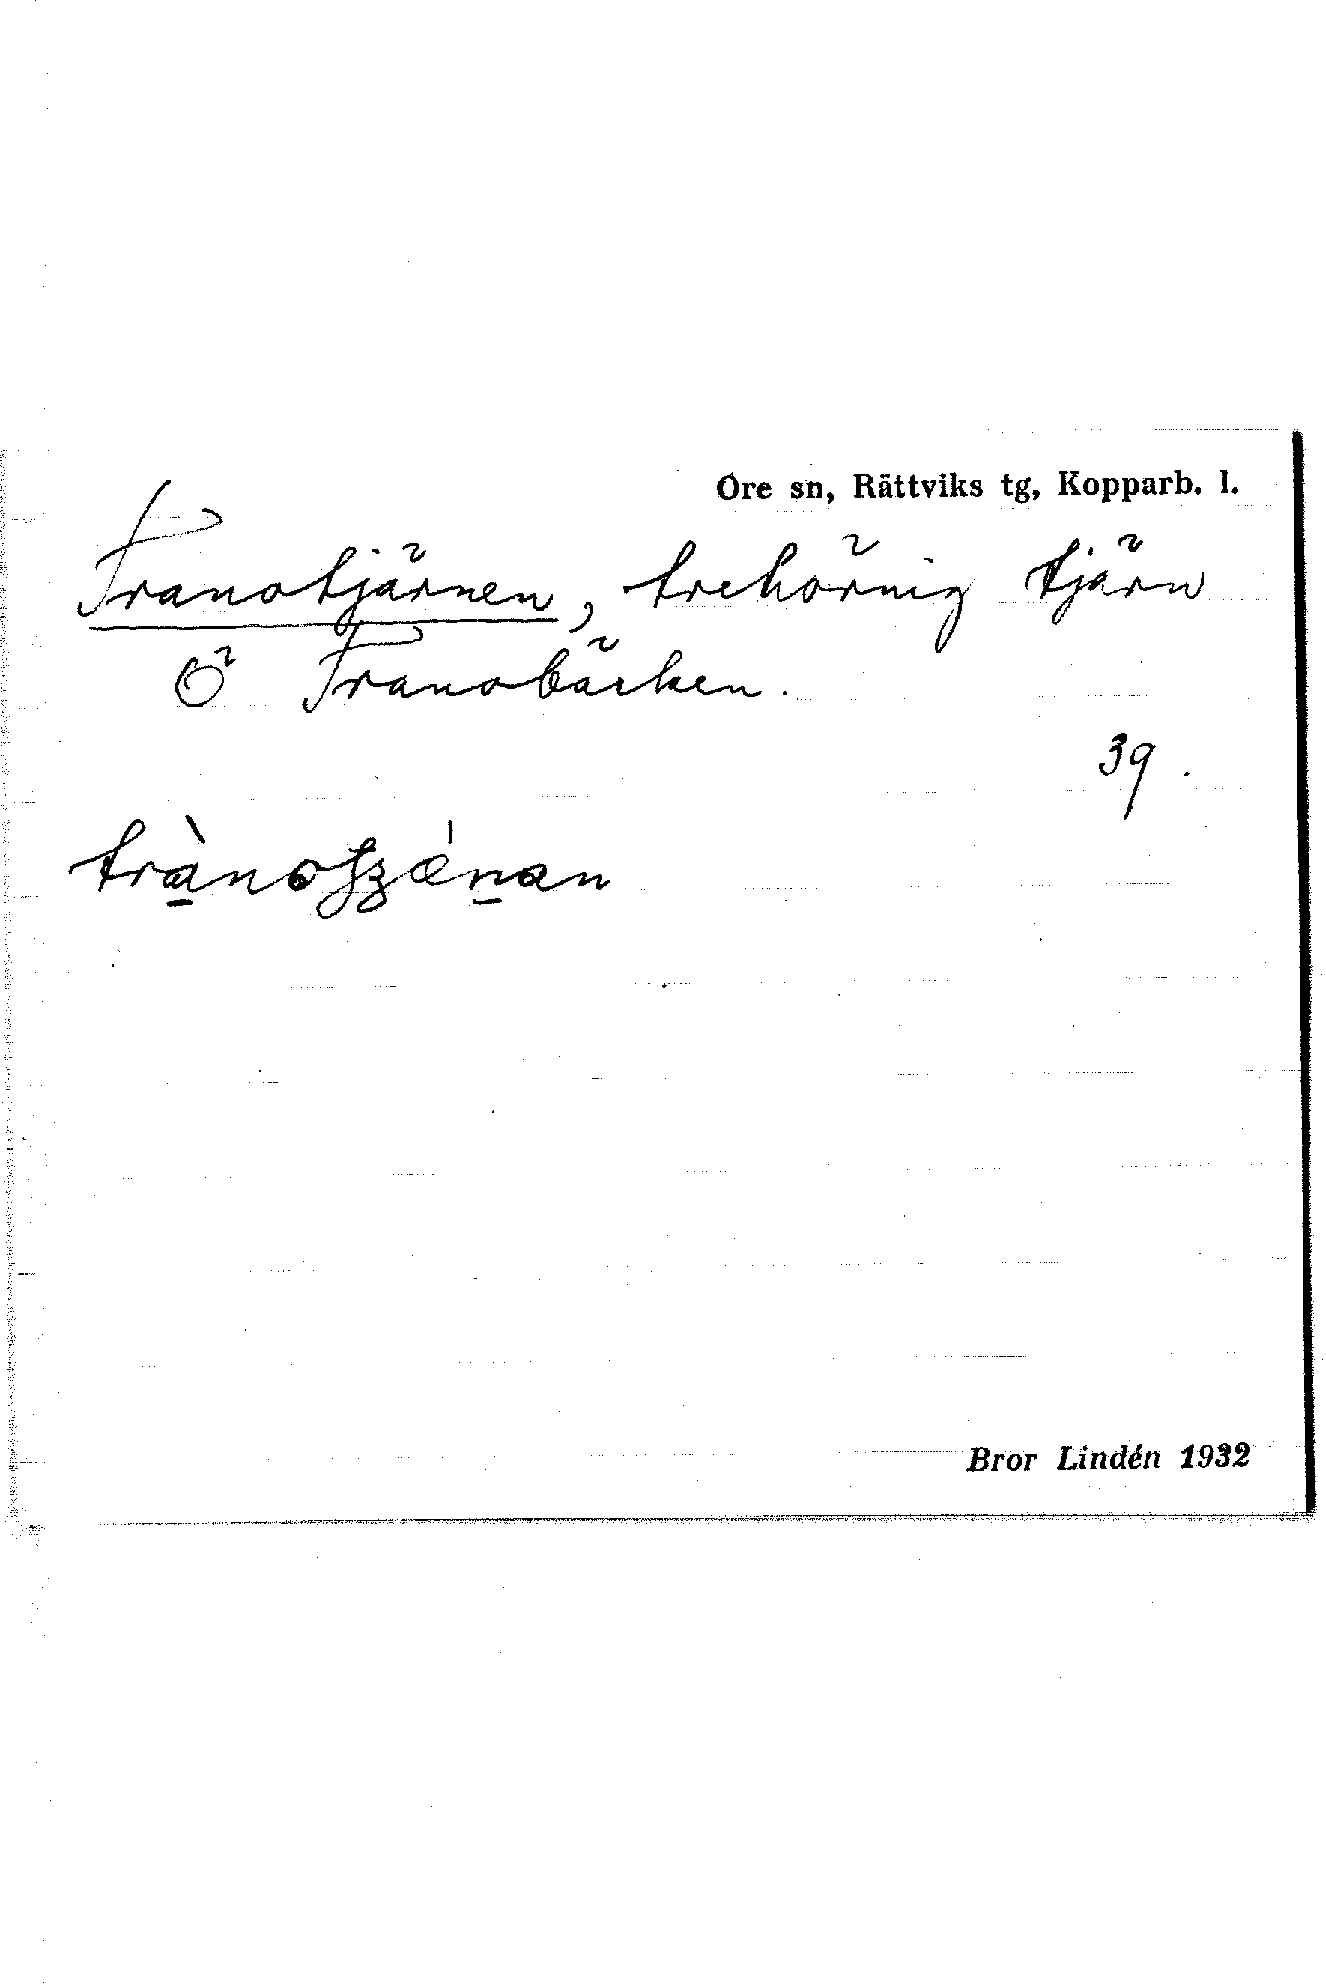 Ore sn, Rättviks tg, Kopparb. l.
Tranotjärnen, trehörnig tjärn
Ö Tranobäcken.
39.
Bror Lindén 1932